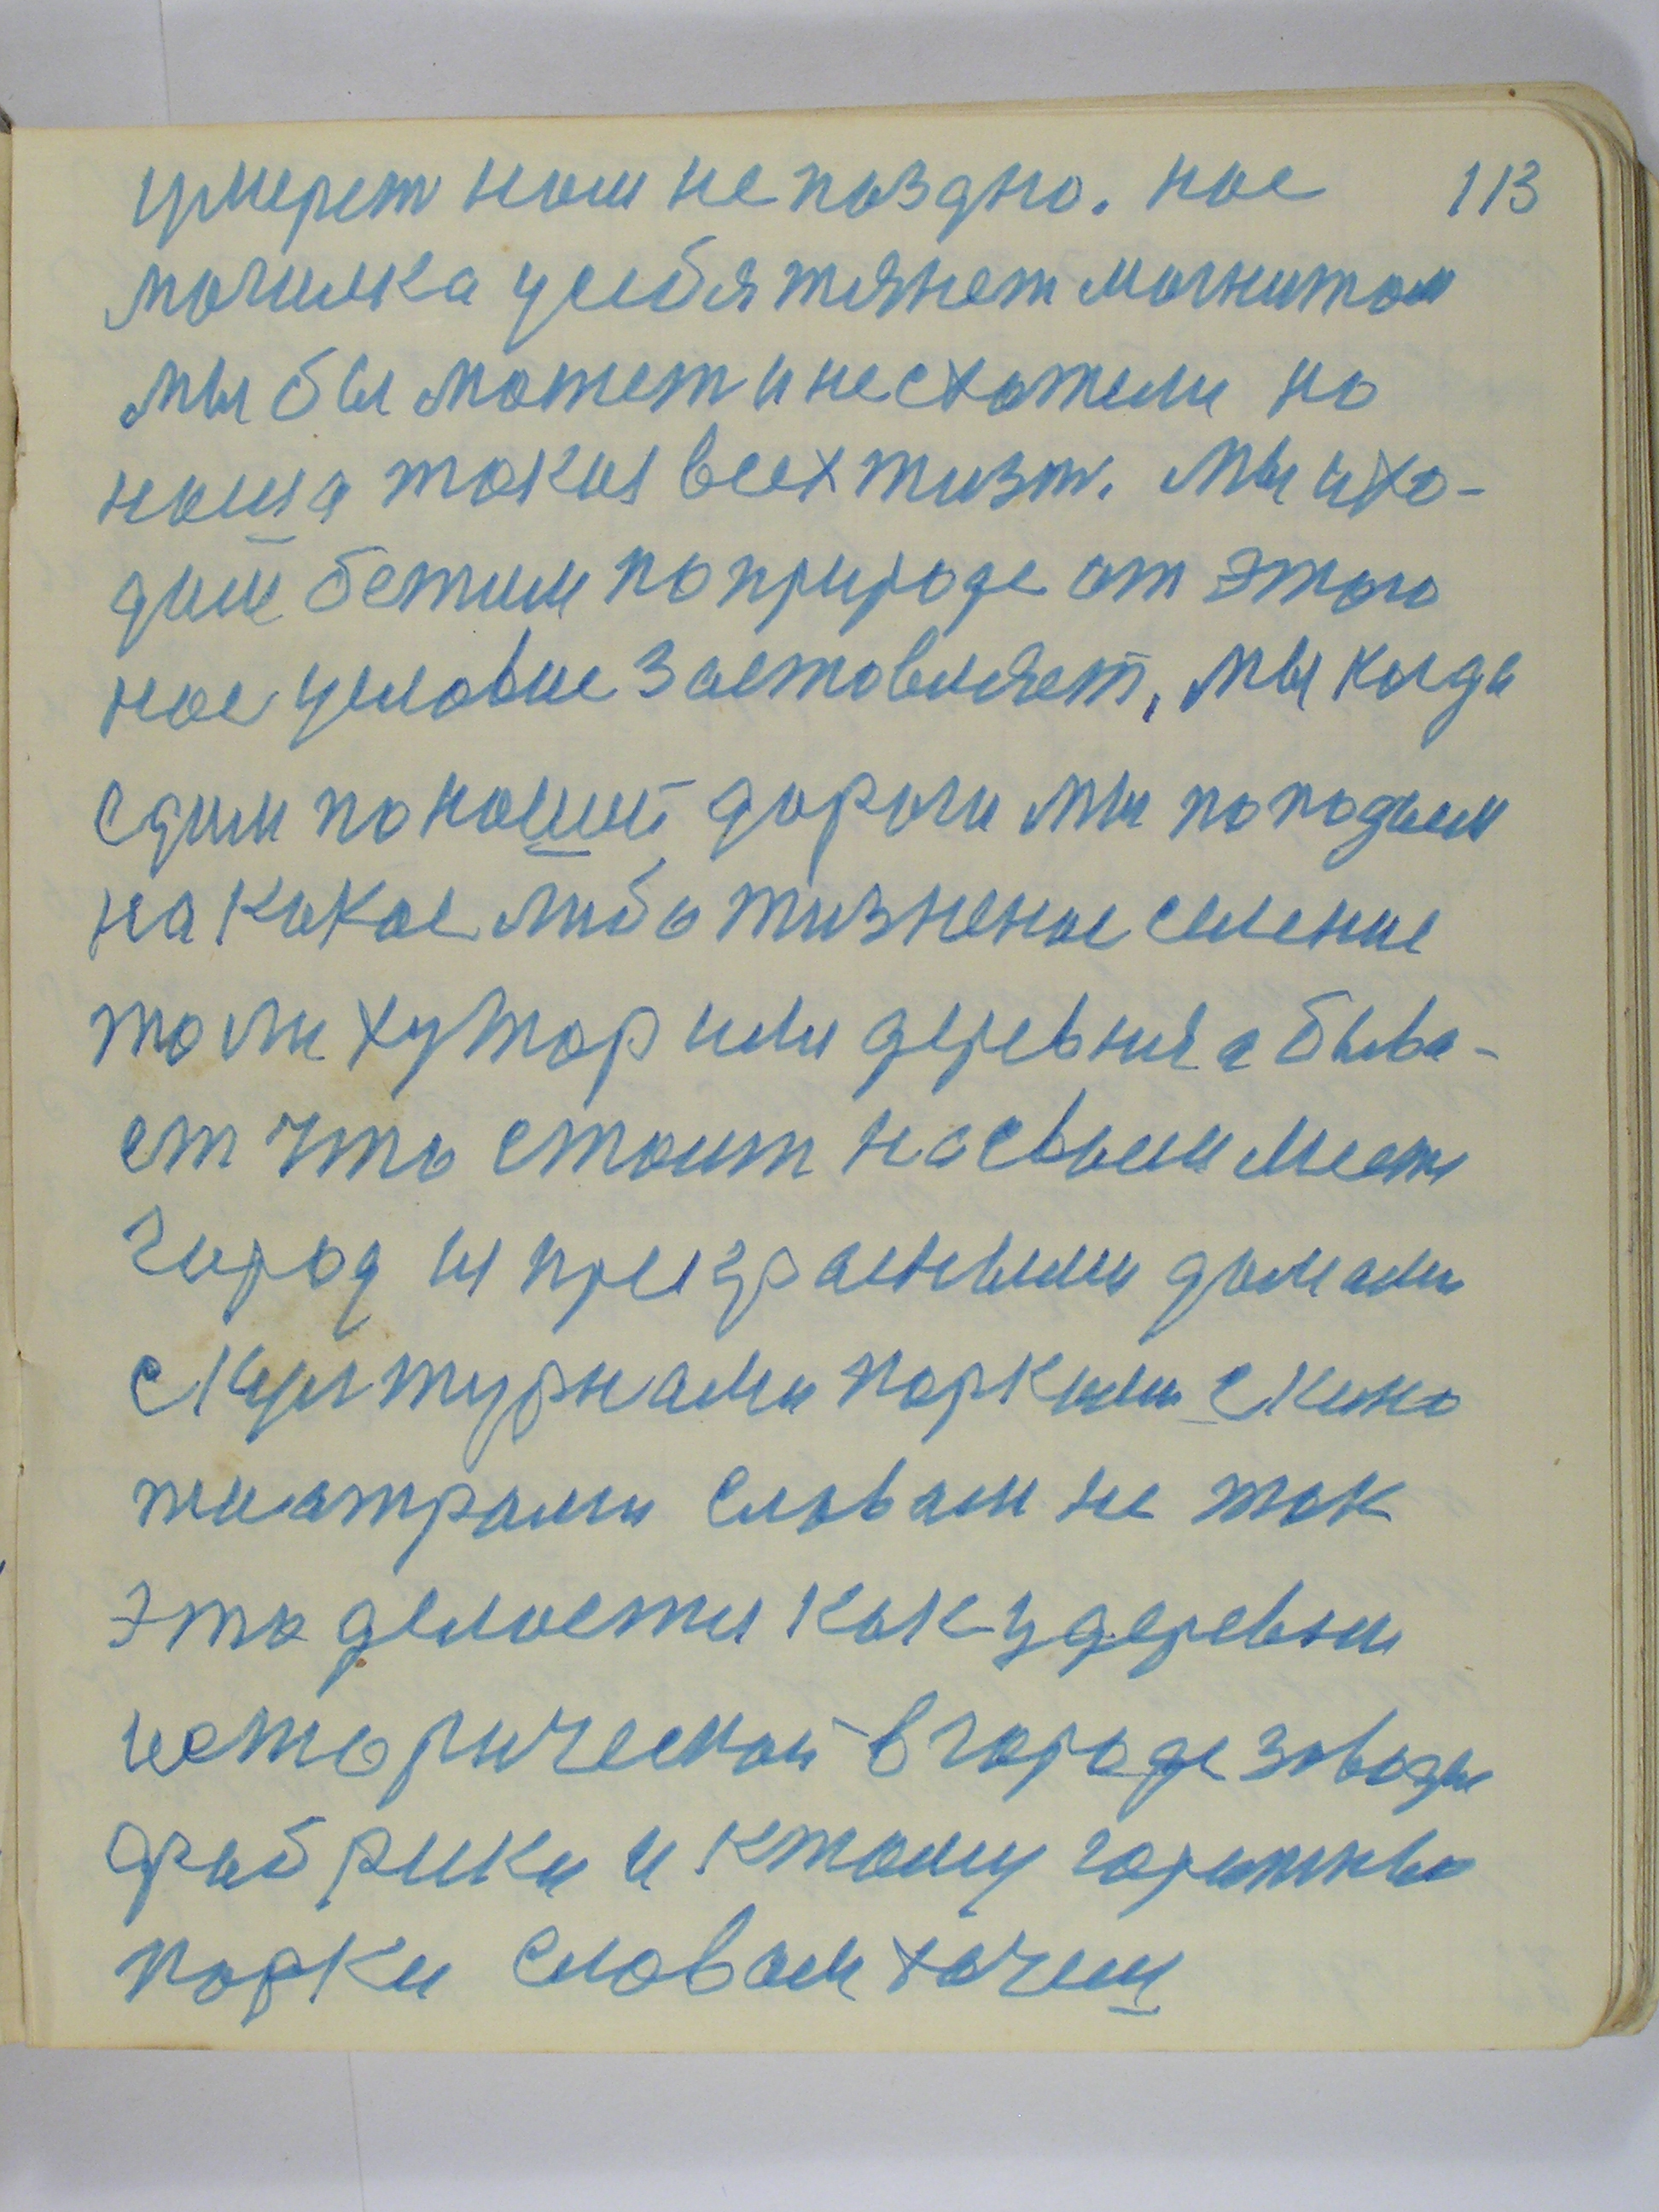 умерет нам не поздно. нас 113
могилка у себя тянет магнитом
мы бы может и не схотели но
наша такая всех жизт. Мы ихо-
дим бежим по природе от этого
нас условие заставляет, мы когда
едим по нашей дороги мы попадаем
на какое либо жизненое селение
то ли хутор или деревня а быва-
ет что стоит на своим месте
город и прекрасными домами
с культурнами парками с кино
театрами словам не так
это делается как у деревни
исторической в городе заводы
фабрики и к тому
парки словам хочеш